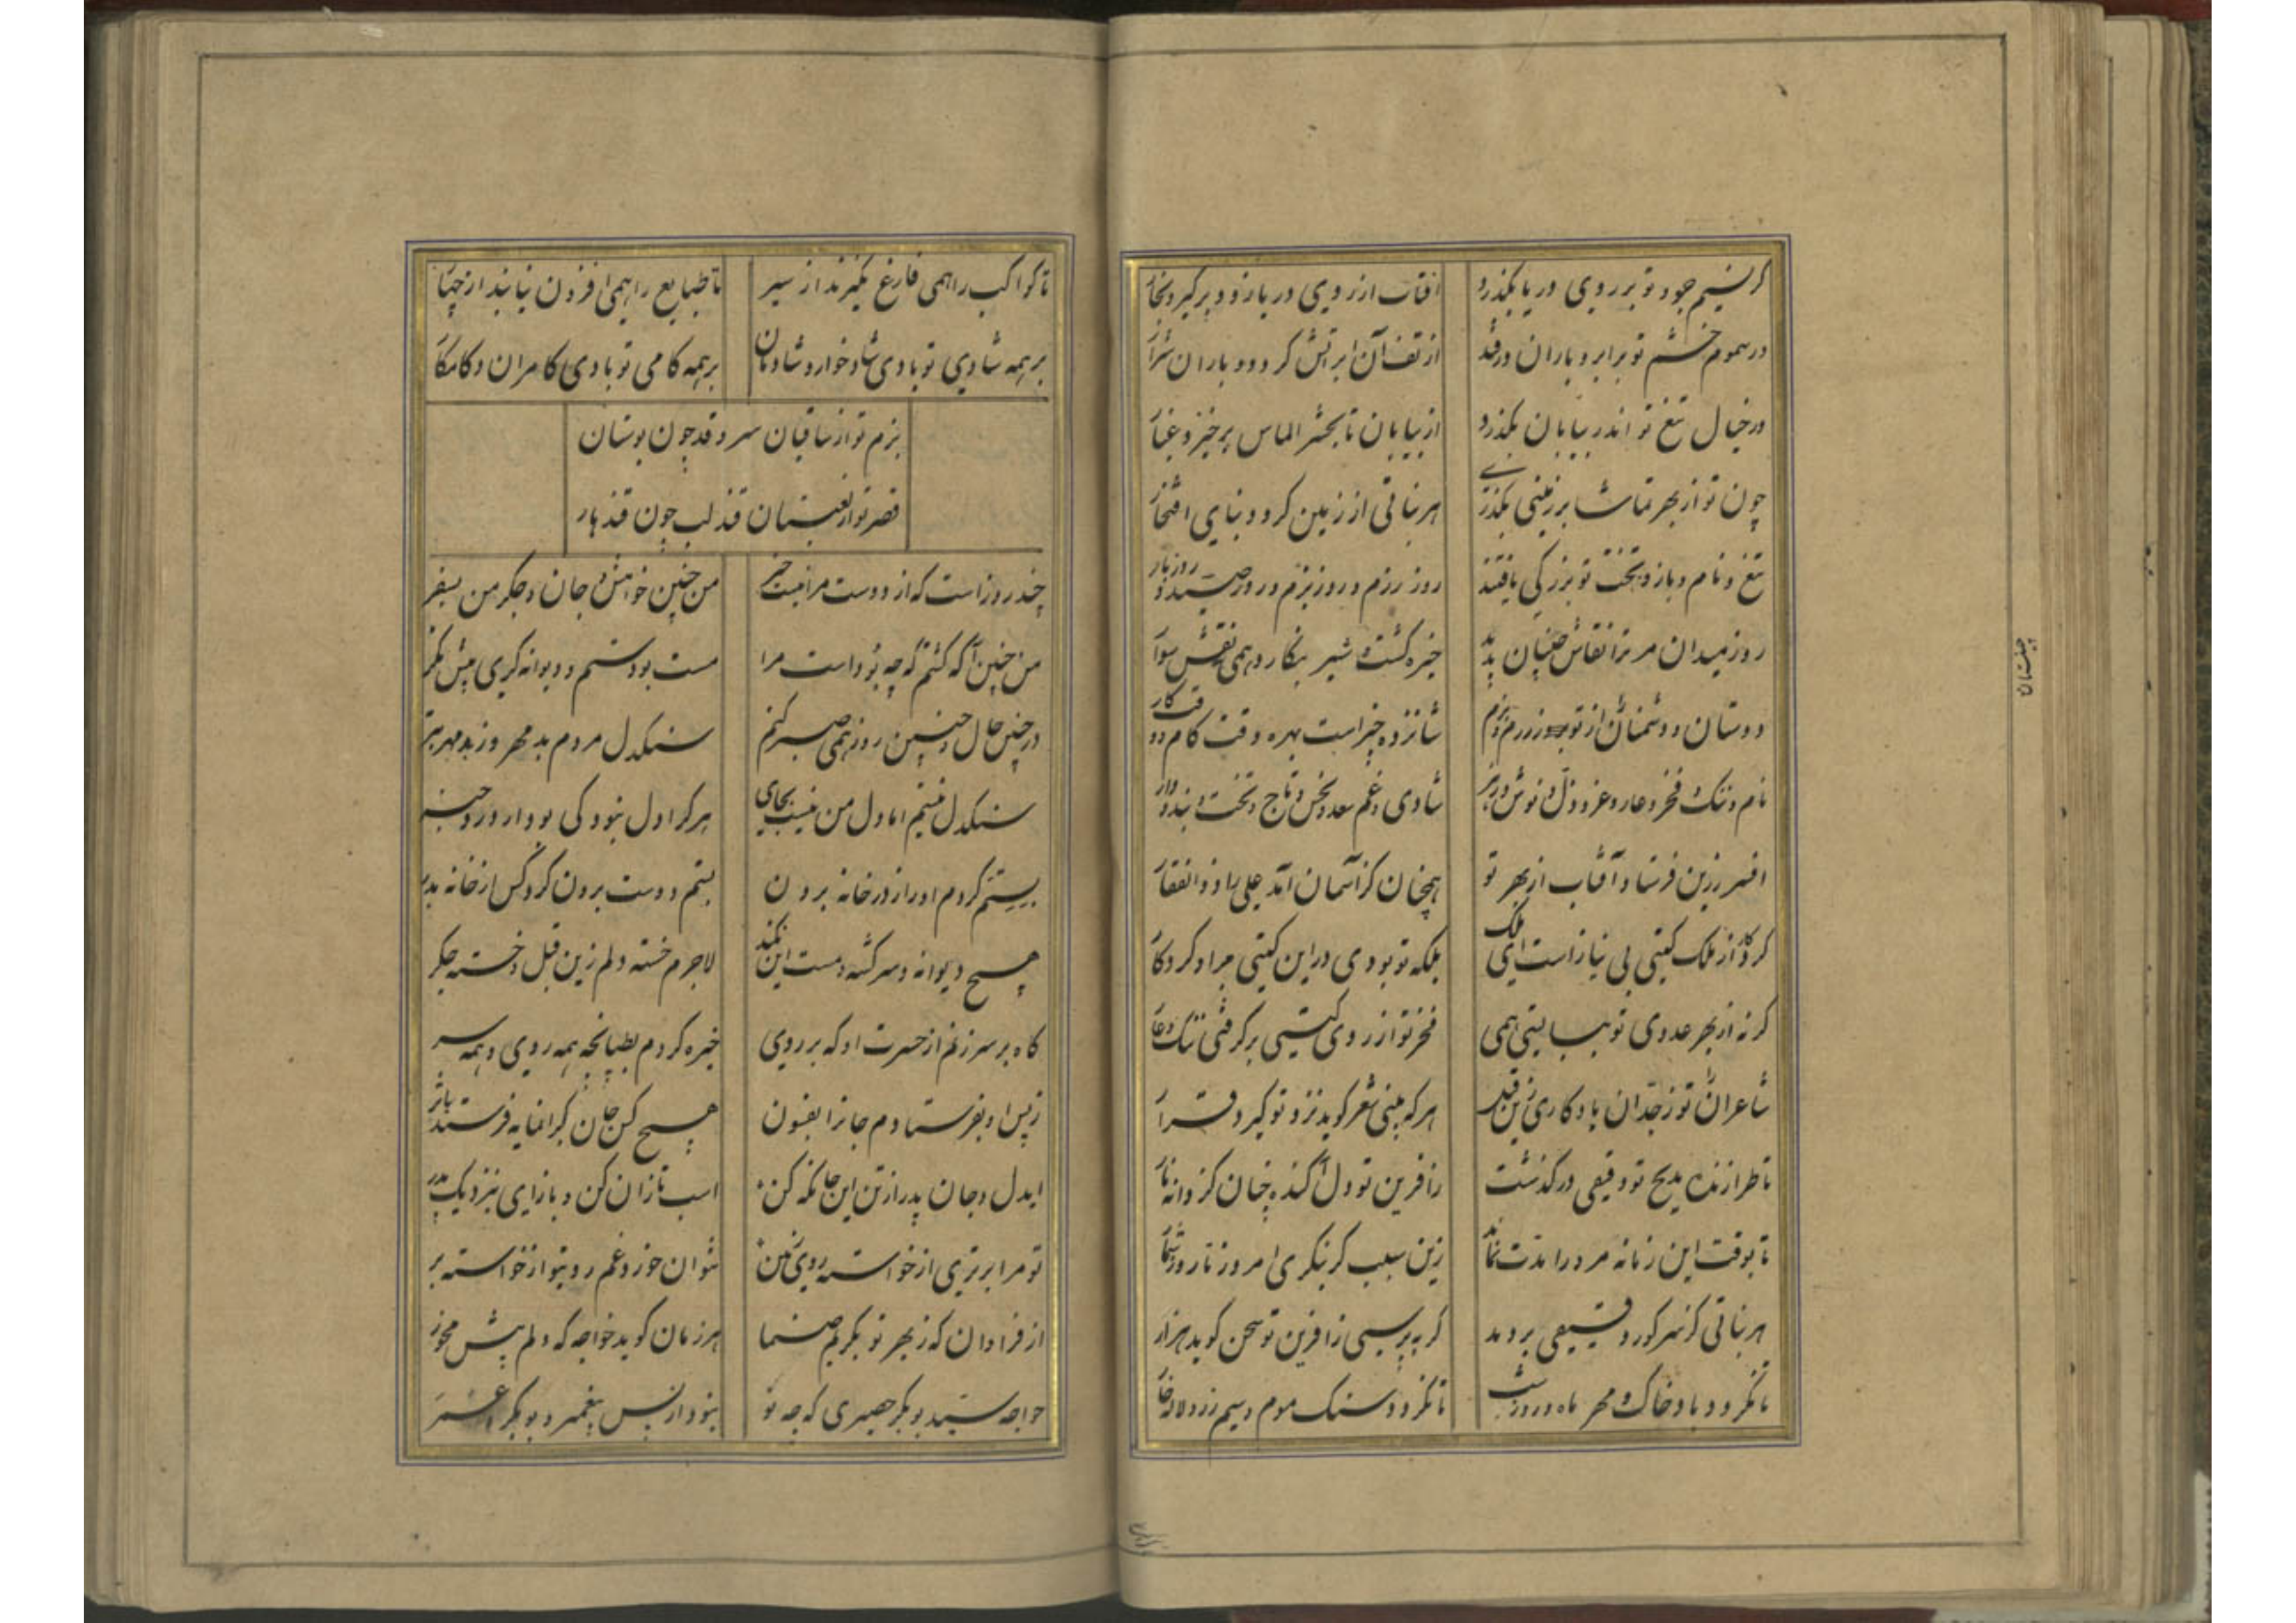 کر نسیم جود تو بر روی دریا بکذرد    آفتاب از روی دریا زود برگیرد بخار
ور سموم خشم تو بر ابر و باران درفتد    از تف آن ابر آتش کردد و باران شرار
ور خیال تیغ تو اندر بیابان بکذرد    از بیابان تا بحشر الماس برخیزد غبار
چون تو از بهر تماشا بر زمینی بکذری    هر نباتی از زمین کردد بنای افتخار
تیغ و نام و باز و تخت تو بزرکی یافتند    روز رزم و روز بزم و روز صید و روز بار
روز میدان مر ترا نقاش چینیان بدید    خیره کشت و شیر بنکارد همی نقش سوار
دوستان و دشمنان از تو روز رزم و بزم    شانزده چیز است بهره وقت کام و وقت کار
نام و ننک و فخر و عار و عز و ذل و نوش و زهر    شادی و غم سعد و نحس و تاج و تخت و بند و دار
افسر زرین فرستاد آفتاب از بهر تو    همچنان کز آسمان آمد علی را ذوالفقار
کردکار از ملک کیتی بی نیاز است ای ملک    ملکه تو بودی در این کیتی مراد کردکار
کر نه از بهر عدوی تو ببایستی همی    فخر تو از روی کیتی برکرفتی ننک و عار
شاعران تو ز جدان یادکاری زین قبل    هر که بینی شعر کوید نزد تو کیرد قرار
تا طرازنده مدیح تو دقیقی درکذشت    زآفرین تو دل آکنده چنان کز دانه نار
تا بوقت این زمانه مر ورا مدت نماند    زین سبب کر بنکری امروز تا روز شمار
هر نباتی کز سر کور دقیقی بر دمد    کر بپرسی زآفرین تو سخن کوید هزار
تا نکردد باد خاک و مهر ماه و روز شب    تا نکردد سنک موم و سیم زر و لاله خار
چیستان
تا کواکب را همی فارغ نکیرند از سیر    تا طبایع را همی افزون نیابند از چهار
بر همه شادی تو بادی شادخوار و شادمان    بر همه کامی تو بادی کامران و کامکار
بزم تو از ساقیان سروقد چون بوستان
قصر تو از لعبتان قندلب چون قندهار
چند روز است که از دوست مرا نیست خبر    من چنین خوامش و جان و جکر من بسفر
من چنین آکه کشتم که چه بوده است مرا    مست بودستم و دیوانه کری بیش مکر
در چنین حال و چنین روز همی صبر کنم    سنکدل مردم بد مهر و ز بد مهر بتر
سنکدل نیستم اما دل من نیست بجای    هر کرا دل نبود کی بود از درد خبر
بستم کردم او را از در خانه برون    بستم دوست برون کرد کس از خانه بدر
هیچ دیوانه و سرکشته و مست این نکند    لاجرم خسته دلم زین قبل و خسته جکر
کاه بر سر زنم از حسرت او که بر روی    خیره کردم بطپانچه همه روی و همه سر
ز پس او بفرستادم جانرا بفسون    هیچ کس جان کرانمایه فرستد باثر
ایدل و جان پدر از تن این جا نکه کن    اسب تازان کن و بازآی بنزدیک پدر
تو مرا برتری از خواسته روی زمین    نتوان خورد غم روی تو از خواسته بر
از فراوان که ز بهر تو بکریم صنما    هر زمان کوید خواجه که دلم بیش مخور
خواجه سید بوبکر حصیری که چه نو    نبود از پس پیغمبر و بوبکر و عمر